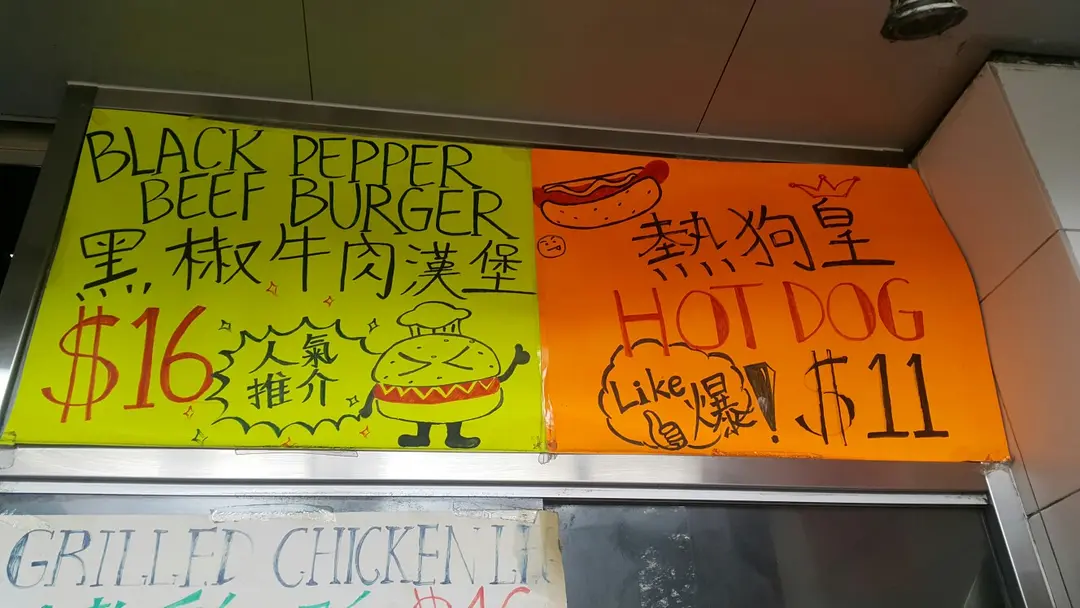 BLACK PEPPER
BEEF BURGER
黑椒牛肉漢堡
$16
人氣
推介
熱狗皇
HOT DOG
Like 爆!
$11
GRILLED CHICKEN